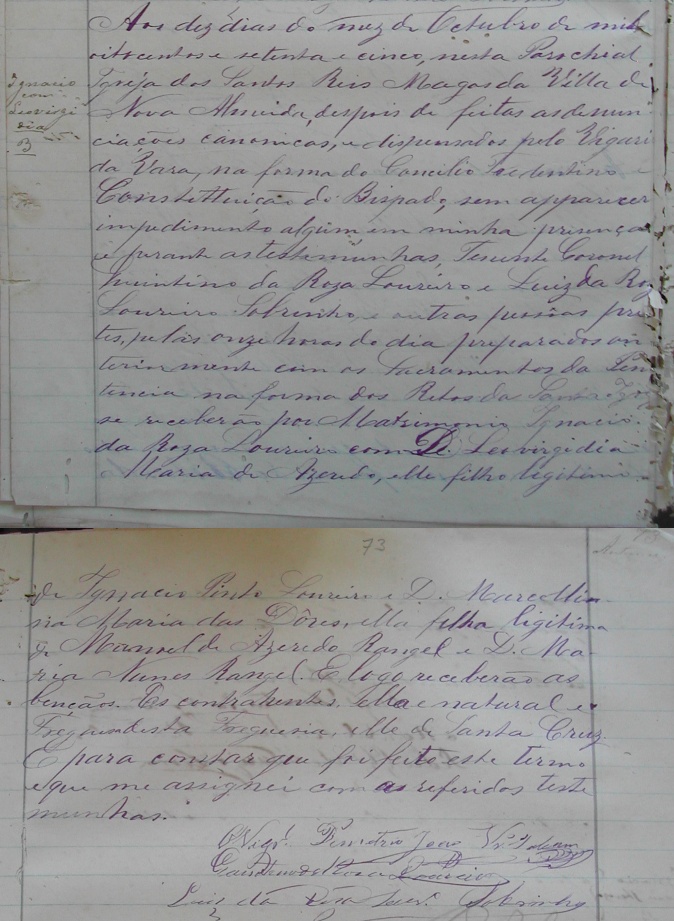 Ignacio
com
Leovirgi
dia
Aos dez dias do mez de Octubro de mil
oitocentos e setenta e cinco, nesta Parochial
Igreja dos Santos Reis Magos da Villa de
Nova Almeida, despois de feitas as denun
ciações canonicas, e dispensados pelo Vigari
da Vara, na forma do Concilio Tredentino e
Constettuição do Bispado, sem apparecer
impedimento algum em minha presença
e perante as testemunhas, Tenente Coronel
Quintino da Roza Loureiro e Luiz da Roz
Loureiro Sobrinho, e outras pessôas pre
tes, pelas onze horas do dia preparados an
teriormente com os Sacramentos da Peni
tencia na forma dos Retos da Santa Igr
se receberão por Matrimonio Ignacio
da Roza Loureiro com D. Leovirgidia
Maria de Azeredo, elle filho legitimo
73
de Ignacio Pinto Loureiro e D. Marcelli
na Maria das Dôres, ella filha legitima
de Manoel de Azeredo Rangel e D. Ma
ria Nunes Rangel. E logo receberão as
bençãos. Os contrahentes, ella é natural e
Fregues desta Freguesia, elle de Santa Cruz.
E para constar que foi feito este termo
e que me assignei com as referidos teste
munhas.
O Vigr.º João
Loureiro
Luiz da Roza Lour.º Sobrinho